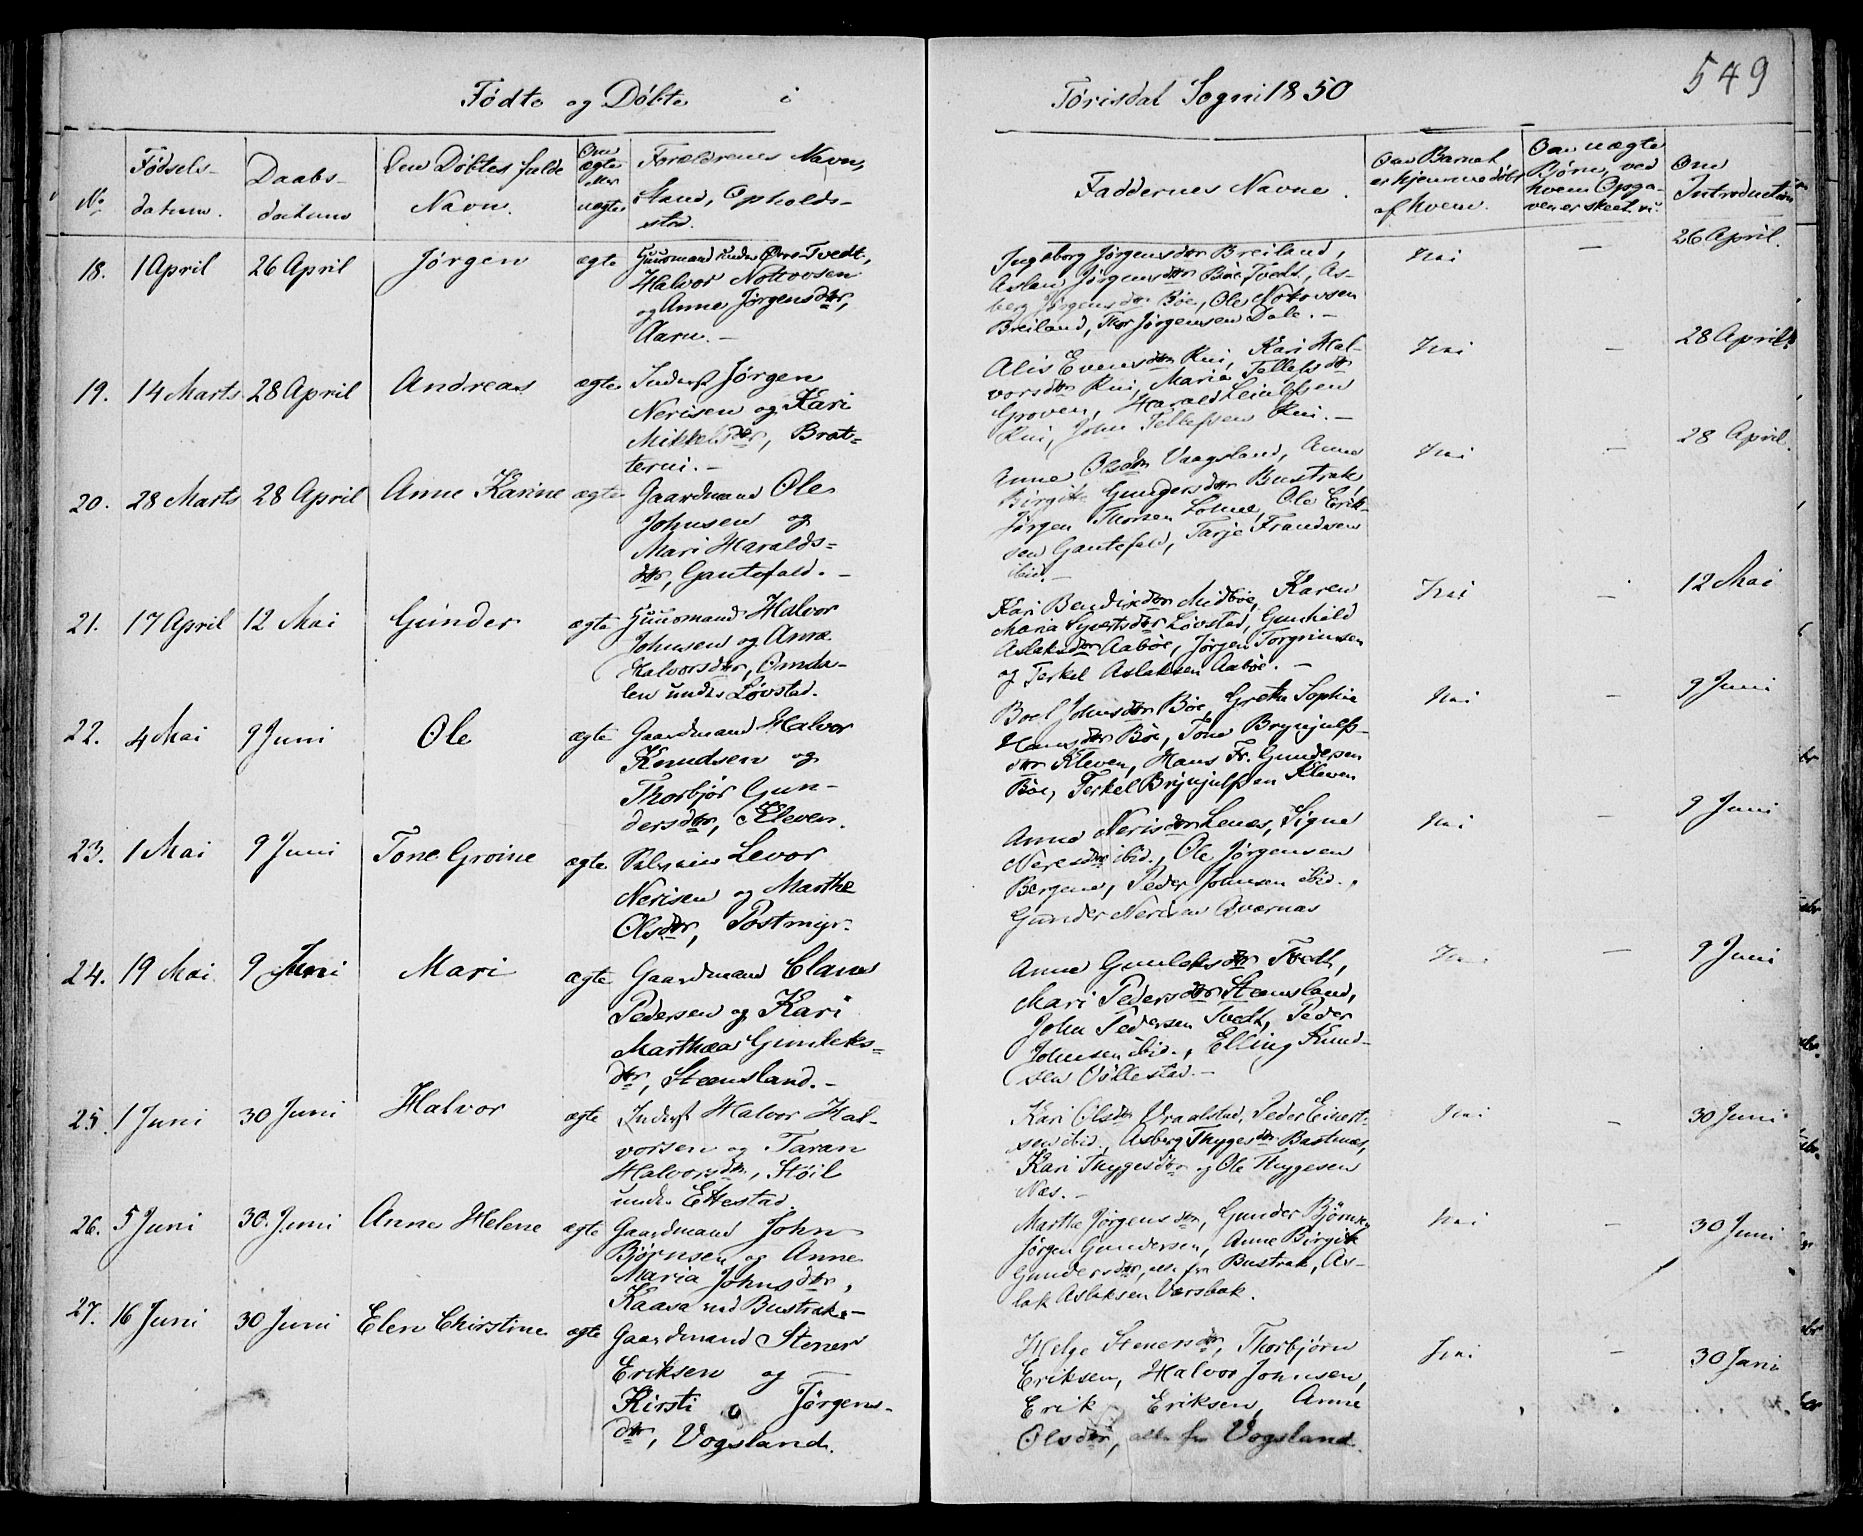 549
Fødte og Døbte i Tørisdal Sogn i 1850
No
Fødsels-
datum.
Daabs-
datum
Den Døbtes fulde
Navn.
Om
ægte
eller
uægte
Forældrenes Navn,
Stand, Opholds-
sted.
Faddernes Navne.
Om Barnet
er hjemmedøbt
af hvem.
Om uægte
Børn, ved
hvem Opga-
ven er skeet
Om
Introduction
18. 1 April 26 April Jørgen ægte Huusmand under Øvre-Tvedt,
Halvor Notovsen
og Anne Jørgensdtr,
Aarn.-
Ingeborg Jørgensdtr Breiland,
Aslau Jørgensdtr Bøe, Tvedt, As-
berg Jørgensdtr Bøe, Ole Notovsen
Breiland, Thor Jørgensen Dale.-
Nei - 26 April.
19. 14 Marts 28 April Andreas ægte Inderst Jørgen
Nerisen og Kari
Mikkelsdtr, Brat-
terni.-
Alis Evensdtr Rui, Kari Hal-
vorsdtr Rui, Maria Tellefsdtr
Groven, Harald Leiulfsen
Rui, John Tellefsen Rui.-
Nei - 28 April
20. 28 Marts 28 April Anne Karine ægte Gaardmand Ole
Johnsen og
Mari Haralds-
dtr, Gautefald.-
Anne Olsdtr Vaagsland, Anne
Birgite Gundersdtr Bustrak,
Jørgen Thorsen Lohne, Ole Erik-
sen Gautefald, Tarje Frandsen
ibid.-
Nei - 28 April
21. 17 April 12 Mai Gunder ægte Huusmand Halvor
Johnsen og Anne
Halvorsdtr, Omda-
len under Løvstad.
Kari Bendixdtr Midbøe, Karen
Maria Syvertsdtr Løvstad, Gunhild
Aslaksdtr Aabøe, Jørgen Torgrimsen
og Terkel Aslaksen Aabøe.-
Nei - 12 Mai
22. 4 Mai 9 Juni Ole ægte Gaardmand Halvor
Knudsen og
Thorbjør Gun-
dersdtr, Kleven.
Boel Johnsdtr Bøe, Grethe Sophie
Hansdtr Bøe, Tone Brynjulfs-
dtr Kleven, Hans Fr. Gundersen
Bøe, Terkel Brynjulfsen Kleven
Nei - 9 Juni
23. 1 Mai 9 Juni Tone Groine ægte Levor
Nerisen og Marthe
Olsdtr, Postmyr.
Anne Nerisdtr Lenes, Signe
Neresdtr ibid., Ole Jørgensen
Bergene, Peder Johnsen ibid.,
Gunder Nerisen Qvernæs
Nei - 9 Juni
24. 19 Mai 9 Juni Mari ægte Gaardmand Claus
Pedersen og Kari
Marthea Gunleks-
dtr, Steensland.-
Anne Gunleksdtr Tveth,
Mari Pedersdtr Steensland,
John Pedersen Tveth, Peder
Johnsen ibid., Elling Knud-
sen Vøllestad.-
Nei - 9 Juni
25. 1 Juni 30 Juni Halvor ægte Inderst Halvor Hal-
vorsen og Taran
Halvorsdtr, Støil
under Ettestad
Kari Olsdtr Vraalstad, Peder Einert-
sen ibid. Asberg Thygesdtr Bastnæs,
Kari Thygesdtr og Ole Thygesen
Næs.-
Nei - 30 Juni
26. 5 Juni 30 Juni Anne Helene ægte Gaardmand John
Bjørnsen og Anne
Maria Johnsdtr,
Kaasa ved Bustrak.-
Marthe Jørgensdtr, Gunder Bjørnsen
Jørgen Gundersen, Anne Birgite
Gundersdtr, alle fra Bustrak, As-
lak Aslaksen Værsbak.
Nei - 30 Juni
27. 16 Juni 30 Juni Elen Chirstine ægte Gaardmand Stener
Eriksen og
Kirsti Jørgens-
dtr, Vogsland.
Helge Stenersdtr, Thorbjørn
Eriksen, Halvor Johnsen,
Erik Eriksen, Anne
Olsdtr, alle fra Vogsland
Nei - 30 Juni